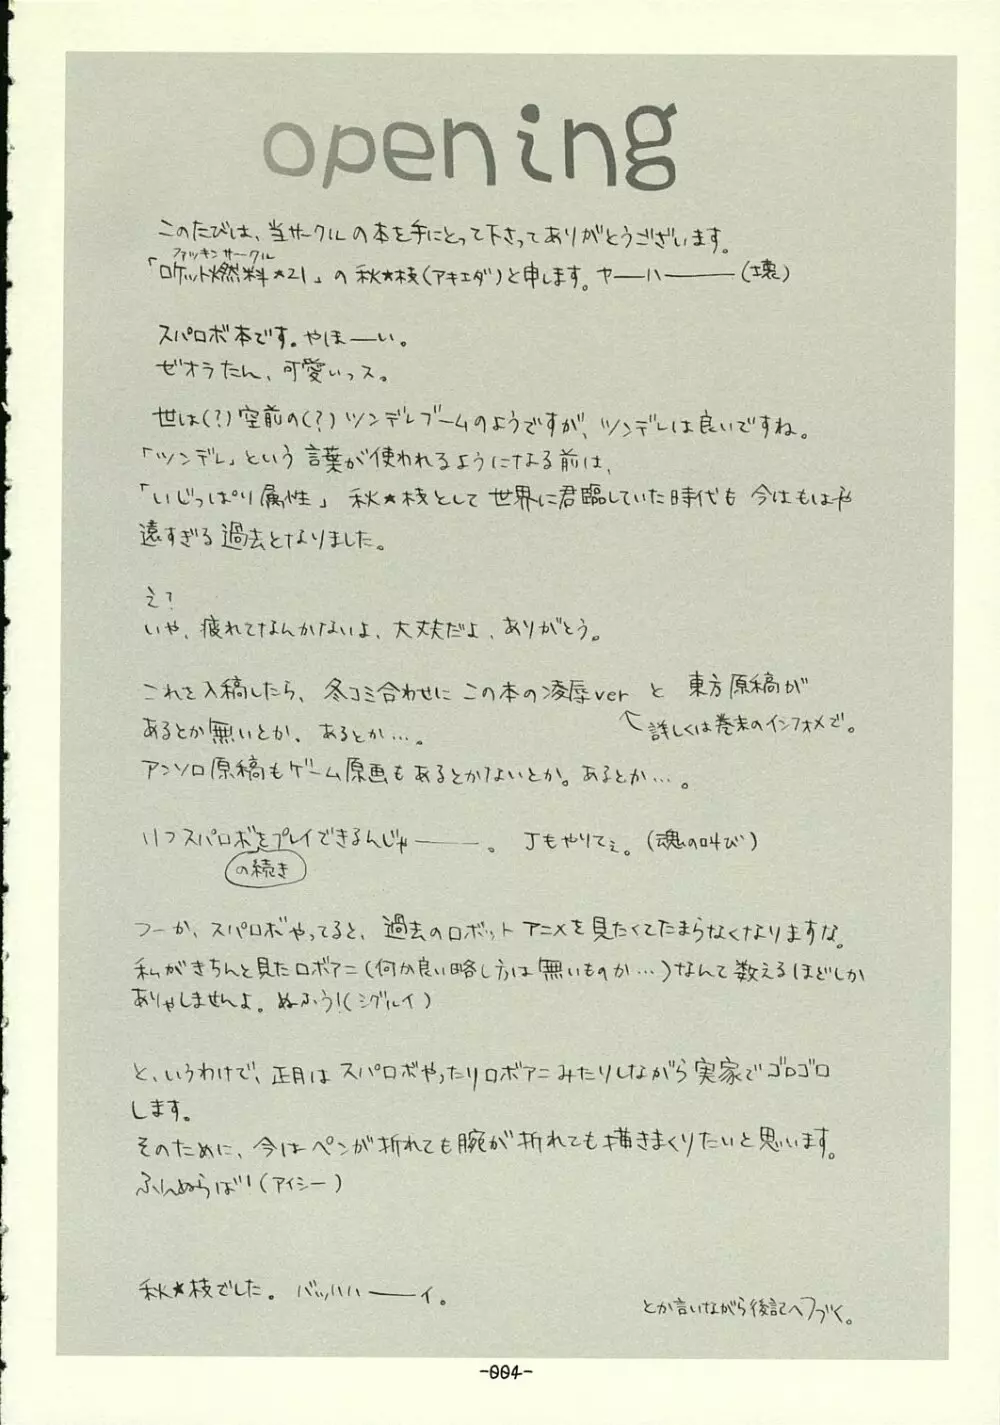 opening
このたびは、当サークルの本を手にとって下さってありがとうございます。
ファッキンサークル
「ロケット燃料★21」の秋★枝(アキエダ)と申します。ヤーハー(壊)
スパロボ本です。やほーい。
ゼオラたん、可愛いっス。
世は(?)空前の(?)ツンデレブームのようですが、ツンデレは良いですね。
「ツンデレ」という言葉が使われるようになる前は、
「いじっぱり属性」秋★枝として世界に君臨していた時代も今はもはや
遠すぎる過去となりました。
え?
いや、疲れてなんかないよ、大丈夫だよ、ありがとう。
これを入稿したら、冬コミ合わせにこの本の凌辱verと東方原稿が
↑詳しくは巻末のインフォメで。
あるとか無いとか、あるとか…。
アンソロ原稿もゲーム原画もあるとかないとか。あるとか…。
いつスパロボをプレイできるんじゃー。Jもやりてぇ。(魂の叫び)
の続き
つーか、スパロボやってると、過去のロボットアニメを見たくてたまらなくなりますな。
私がきちんと見たロボアニ(何か良い略し方は無いものか…)なんて数えるほどしか
ありゃしませんよ。ぬふぅ!(シグルイ)
と、いうわけで、正月はスパロボやったりロボアニみたりしながら実家でゴロゴロ
します。
そのために、今はペンが折れても腕が折れても描きまくりたいと思います。
ふんぬらば!(アイシー)
秋★枝でした。バッハハーイ。
とか言いながら後記へつづく。
-004-